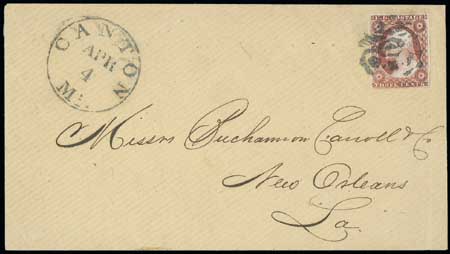 CANTON
APR
4
Mi.
THREE CENTS
Messrs Buchannon Carroll & Co
New Orleans
La